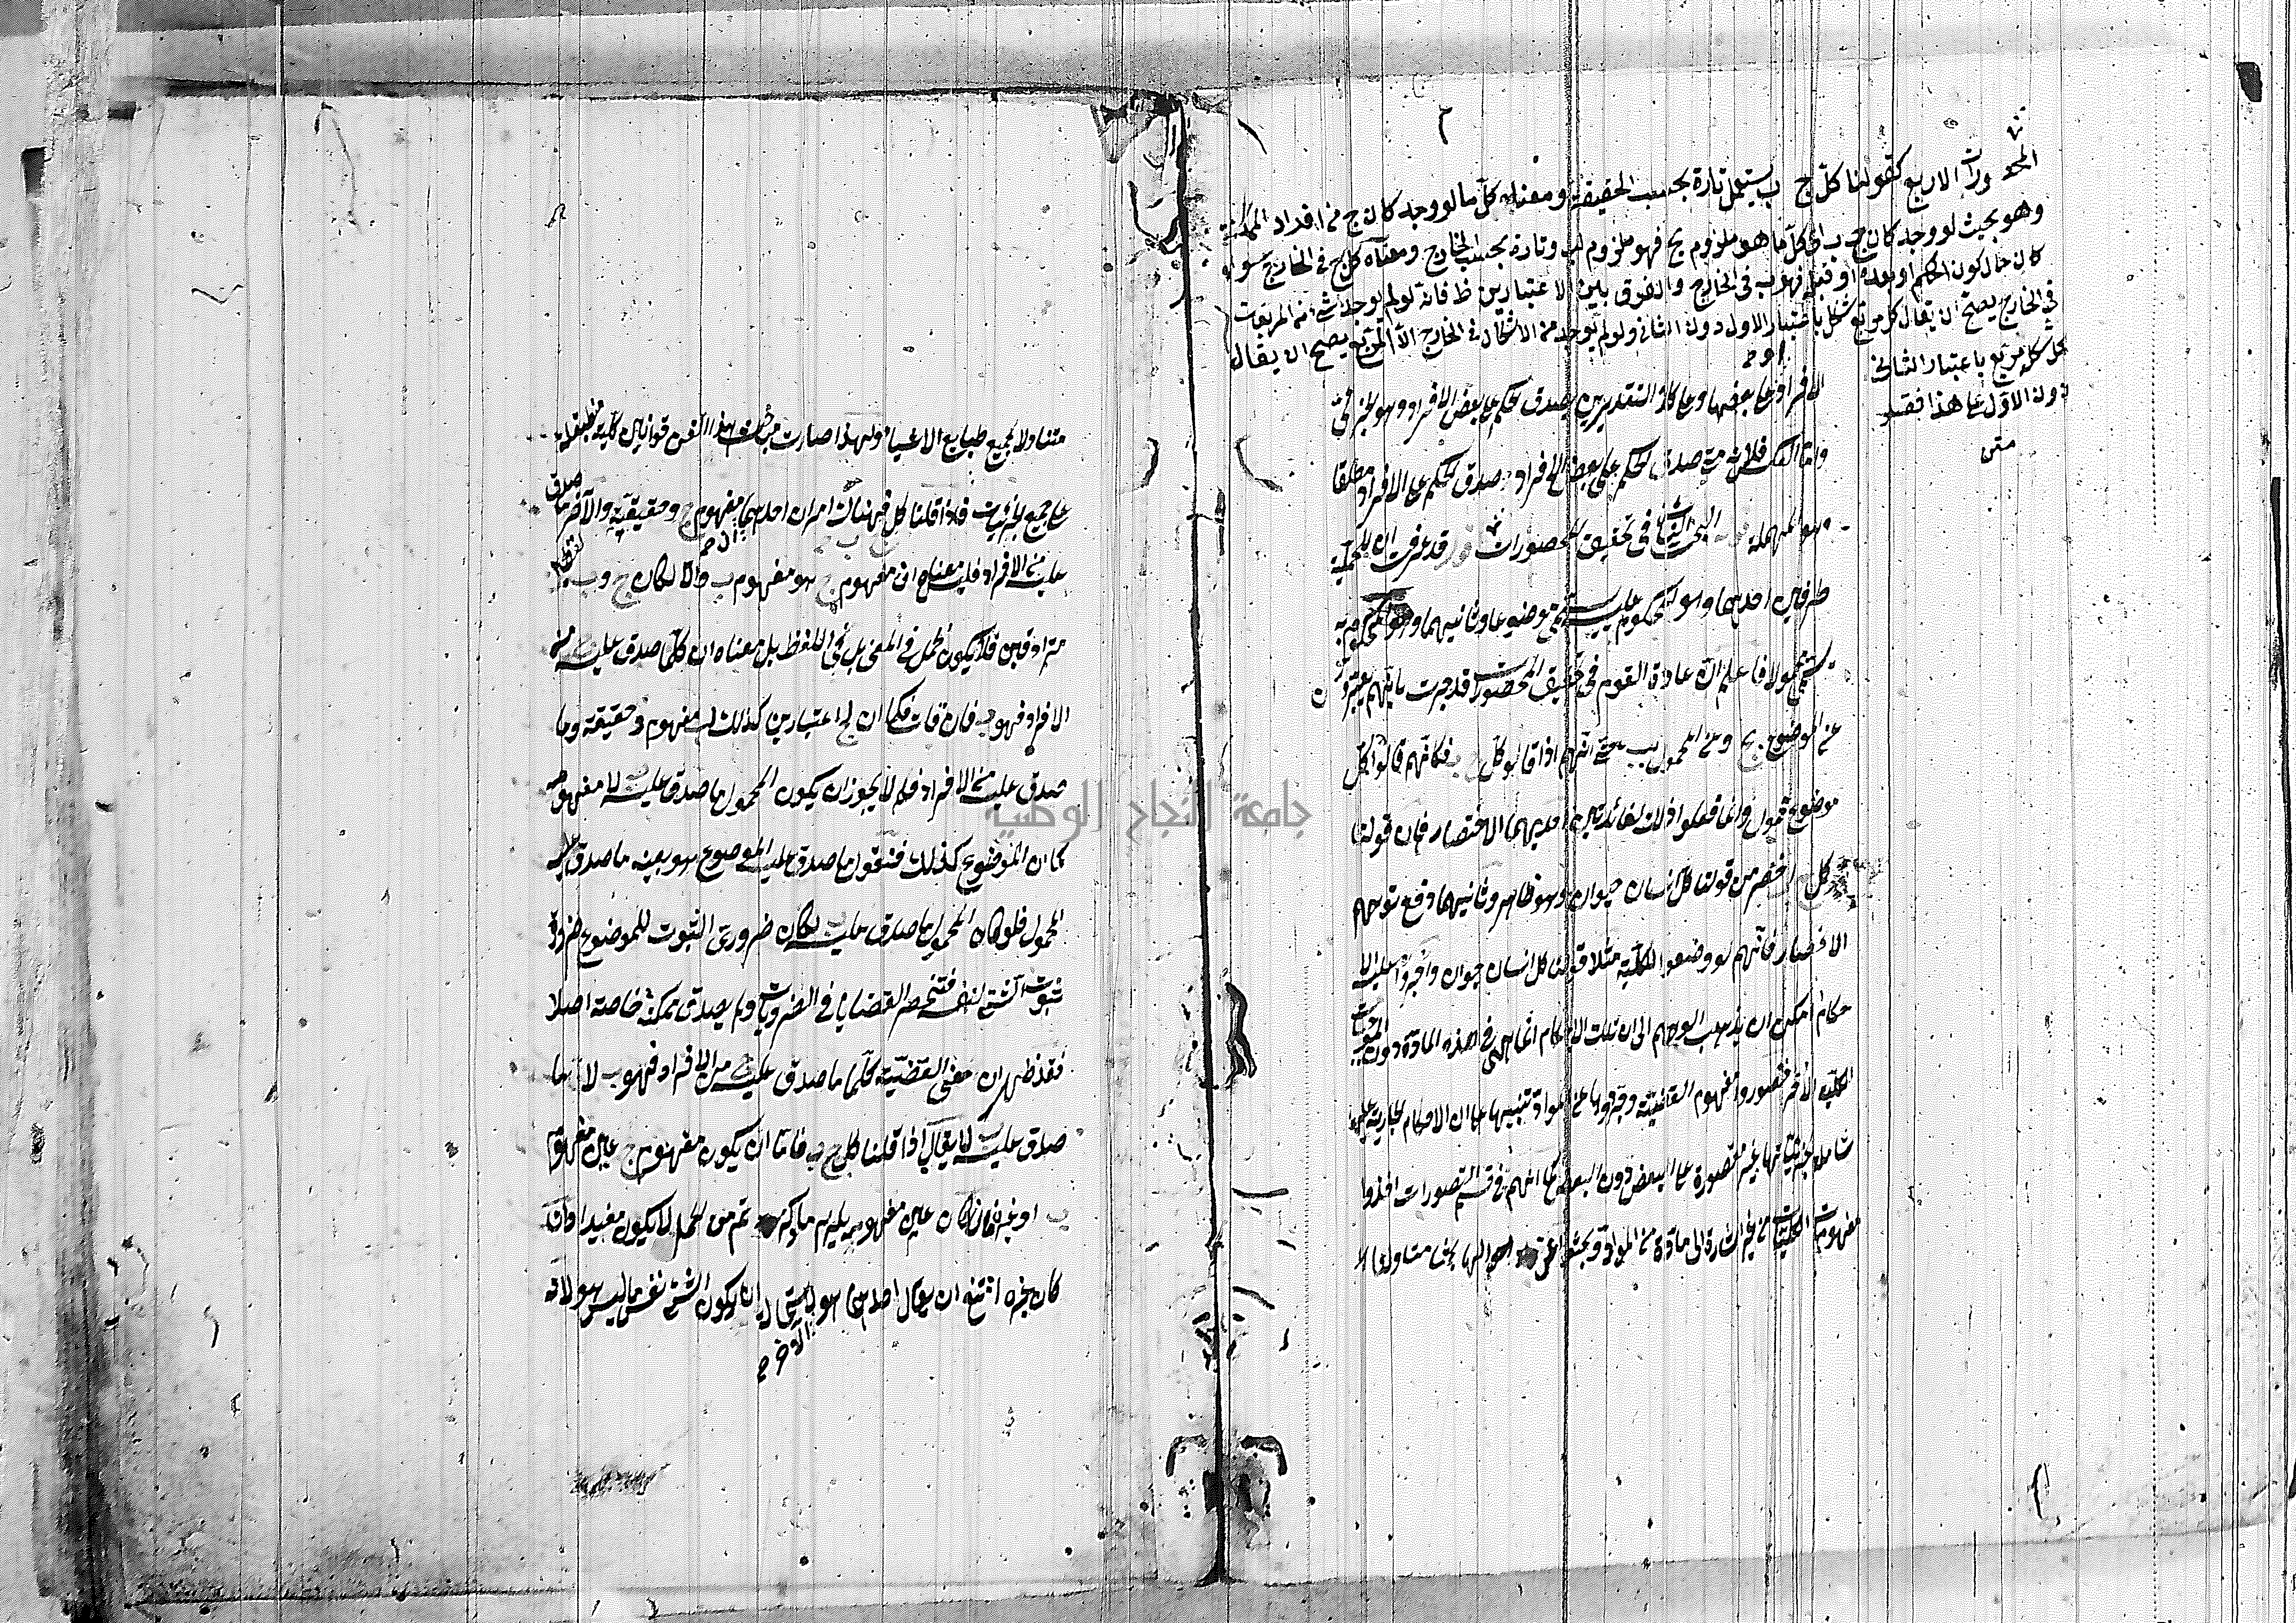 المحصورات الاربع كقولنا كل ج ب يستعمل تارة بحسب الحقيقة ومعناه كل ما لو وجد كان ج من افراد الممكنة
وهو بحيث لو وجد كان ب اى كل ما هو ملزوم ج فهو ملزوم لب وتارة بحسب الخارج ومعناه كل ج فى الخارج سواء
كان حال كون الحكم او بعده او قبله فهو ب فى الخارج والفرق بين الاعتبارين ظ فانه لو لم يوجد شئ من المربعات
فى الخارج يصح ان يقال كل مربع شكل باعتبار الاول دون الثانى ولو لم يوجد من الاشكال فى الخارج الا المربع يصح ان يقال
كل شكل مربع باعتبار الثانى
دون الاول على هذا فقس
متن
الافراد على بعضها وعلى كلا التقديرين يصدق الحكم على بعض الافراد وهو الجزئى
واما العكس فلانه متى صدق الحكم على بعض الافراد صدق الحكم على الافراد مطلقا
وهو المهملة البحث الثانى فى تحقيق المحصورات قد عرفت ان للحملية
طرفين احدهما وهو المحكوم عليه يسمى موضوعا وثانيهما وهو المحكوم به
يسمى محمولا فاعلم ان عادة القوم فى تحقيق المحصورات قد جرت بانهم يعبرون
عن الموضوع بج وعن المحمول بب حتى انهم اذا قالوا كل ج ب فكانهم قالوا كل
موضوع محمول وانما فعلوا ذلك لفائدتين احديهما الاختصار فان قولنا
كل ج ب اخصر من قولنا كل انسان حيوان وهو ظاهر وثانيهما دفع توهم
الانحصار فانهم لو وضعوا للكلية مثلا قولنا كل انسان حيوان واجروا عليه الا
حكام امكن ان يذهب الوهم الى ان تلك الاحكام انما هى فى هذه المادة دون الموجبات
الكلية الاخر فتصوروا مفهوم القضية وجردوها عن المواد تنبيها على ان الاحكام الجارية عليها
شاملة لجزئياتها غير مقصورة على البعض دون البعض كما انهم فى قسم التصورات اخذوا
مفهومات الكليات من غير اشارة الى مادة من المواد وبحثوا عن احوالها بحثا متناولا
متناولا لجميع طبايع الاشياء ولهذا صارت مباحث هذا الفن قوانين كلية منطبقة
على جميع الجزئيات فاذا قلنا كل ج ب فهناك امران احدهما مفهوم ج وحقيقته والآخر ما صدق
عليه من الافراد فليس معناه ان مفهوم ج هو مفهوم ب والا لكان ج و ب لفظين
مترادفين فلا يكون الحمل فى المعنى بل فى اللفظ بل معناه ان كل ما صدق عليه ج من
الافراد فهو ب فان قلت كما ان لج اعتبارين كذلك لب مفهوم وحقيقة وما
صدق عليه من الافراد فلم لا يجوز ان يكون المحمول ما صدق عليه ب لا مفهومه
كما ان الموضوع كذلك فنقول ما صدق عليه الموضوع هو بعينه ما صدق عليه
المحمول فلو كان المحمول ما صدق عليه ب لكان ضرورى الثبوت للموضوع ضرورة
ثبوت الشئ لنفسه فتنحصر القضايا فى الضروريات ولم يصدق ممكنة خاصة اصلا
فقد ظهر ان معنى القضية كل ما صدق عليه ج من الافراد فهو ب لا ما
صدق عليه ب لا يقال اذا قلنا كل ج ب فاما ان يكون مفهوم ج عين مفهوم
ب او غيره فان كان عين مفهوم ب يلزم ما ذكرتم من الحمل لا يكون مفيدا وان
كان غيره امتنع ان يقال احدهما هو الآخر لاستحالة ان يكون الشئ نفس ما ليس هو لانه
جامعة النجاح الوطنية